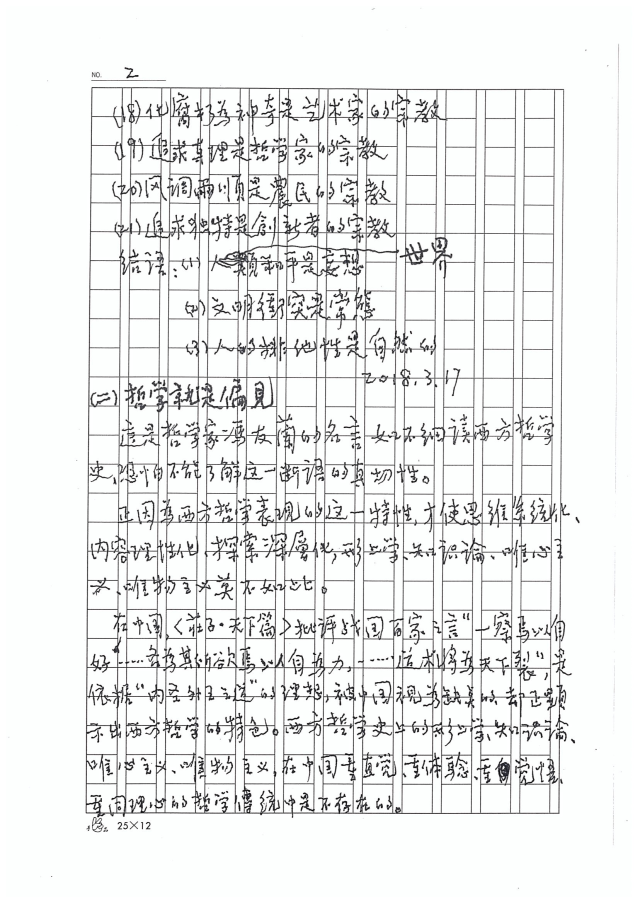 NO. 2
(18)化腐朽為神奇是艺术家的宗教
(19)追求真理是哲学家的宗教
(20)风调雨顺是農民的宗教
(21)追求独特是創新者的宗教
结语:(1)人類和平是妄想 世界
(2)文明衝突是常態
(3)人的排他性是自然的
2018.3.17
(二)哲学就是偏見
這是哲学家冯友蘭的名言,如不细读西方哲学
史,恐怕不能了解这一断语的真切性。
正因為西方哲学表現的这一特性,才使思维系统化、
内容理性化、探索深層化,形上学、知识论、唯心主
义、唯物主义莫不如此。
在中国,《莊子·天下篇》批评战国百家之言“一察焉以自
好”……各為其所欲焉以自為方,……道术将為天下裂”,是
依據“内圣外王之道”的理想,被中国視為缺臾的,却正顯
示出西方哲学的特色。西方哲学史上的形上学、知识论、
唯心主义、唯物主义,在中国重直觉、重体驗、重覺悟、
重同理心的哲学傳統中是不存在的。
25×12